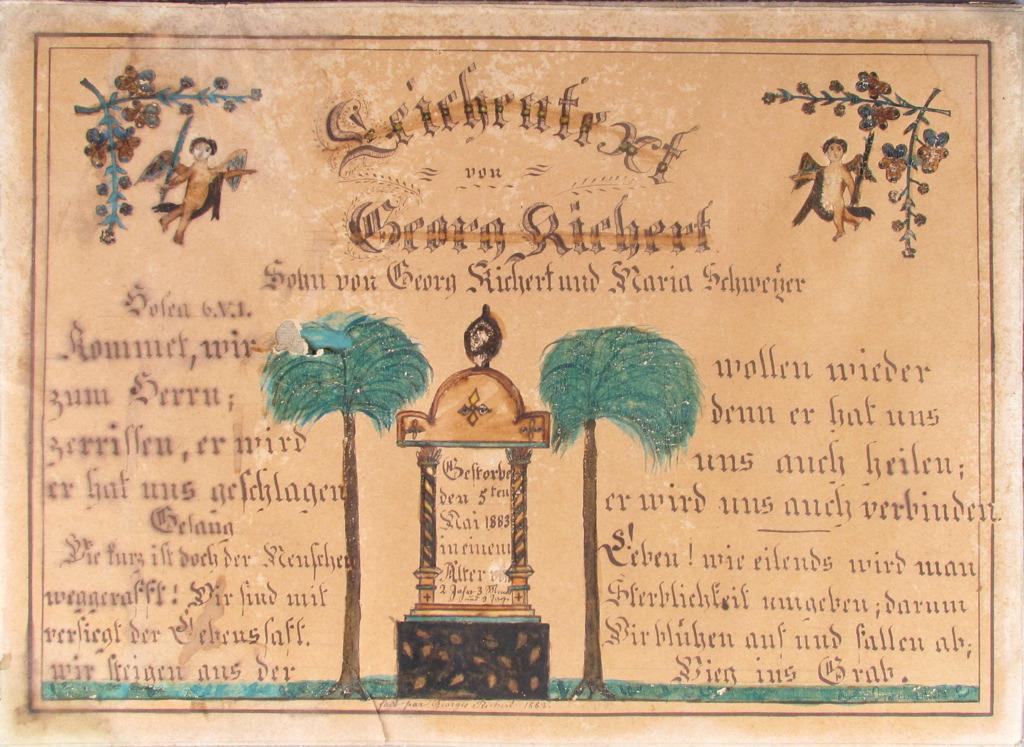 Leichentext
von
Georg Richert
Sohn von Georg Richert und Maria Schweyer
Hosea 6.V.1.
Kommet, wir wollen wieder
zum Herrn; denn er hat uns
zerrissen, er wird uns auch heilen;
er hat uns geschlagen er wird uns auch verbinden.
Gesang
Wie kurz ist doch der Menschen Leben! wie eilends wird man
weggerafft! Wir sind mit Sterblichkeit umgeben; darum
versiegt der Lebenssaft. Wir blühen auf und fallen ab;
wir steigen aus der Wieg ins Grab.
Gestorben
den 5ten
Mai 1883
in einem
Alter von
2 Jahr 3 Monat
und 9 Tag.
fait par Georges Richert 1883.